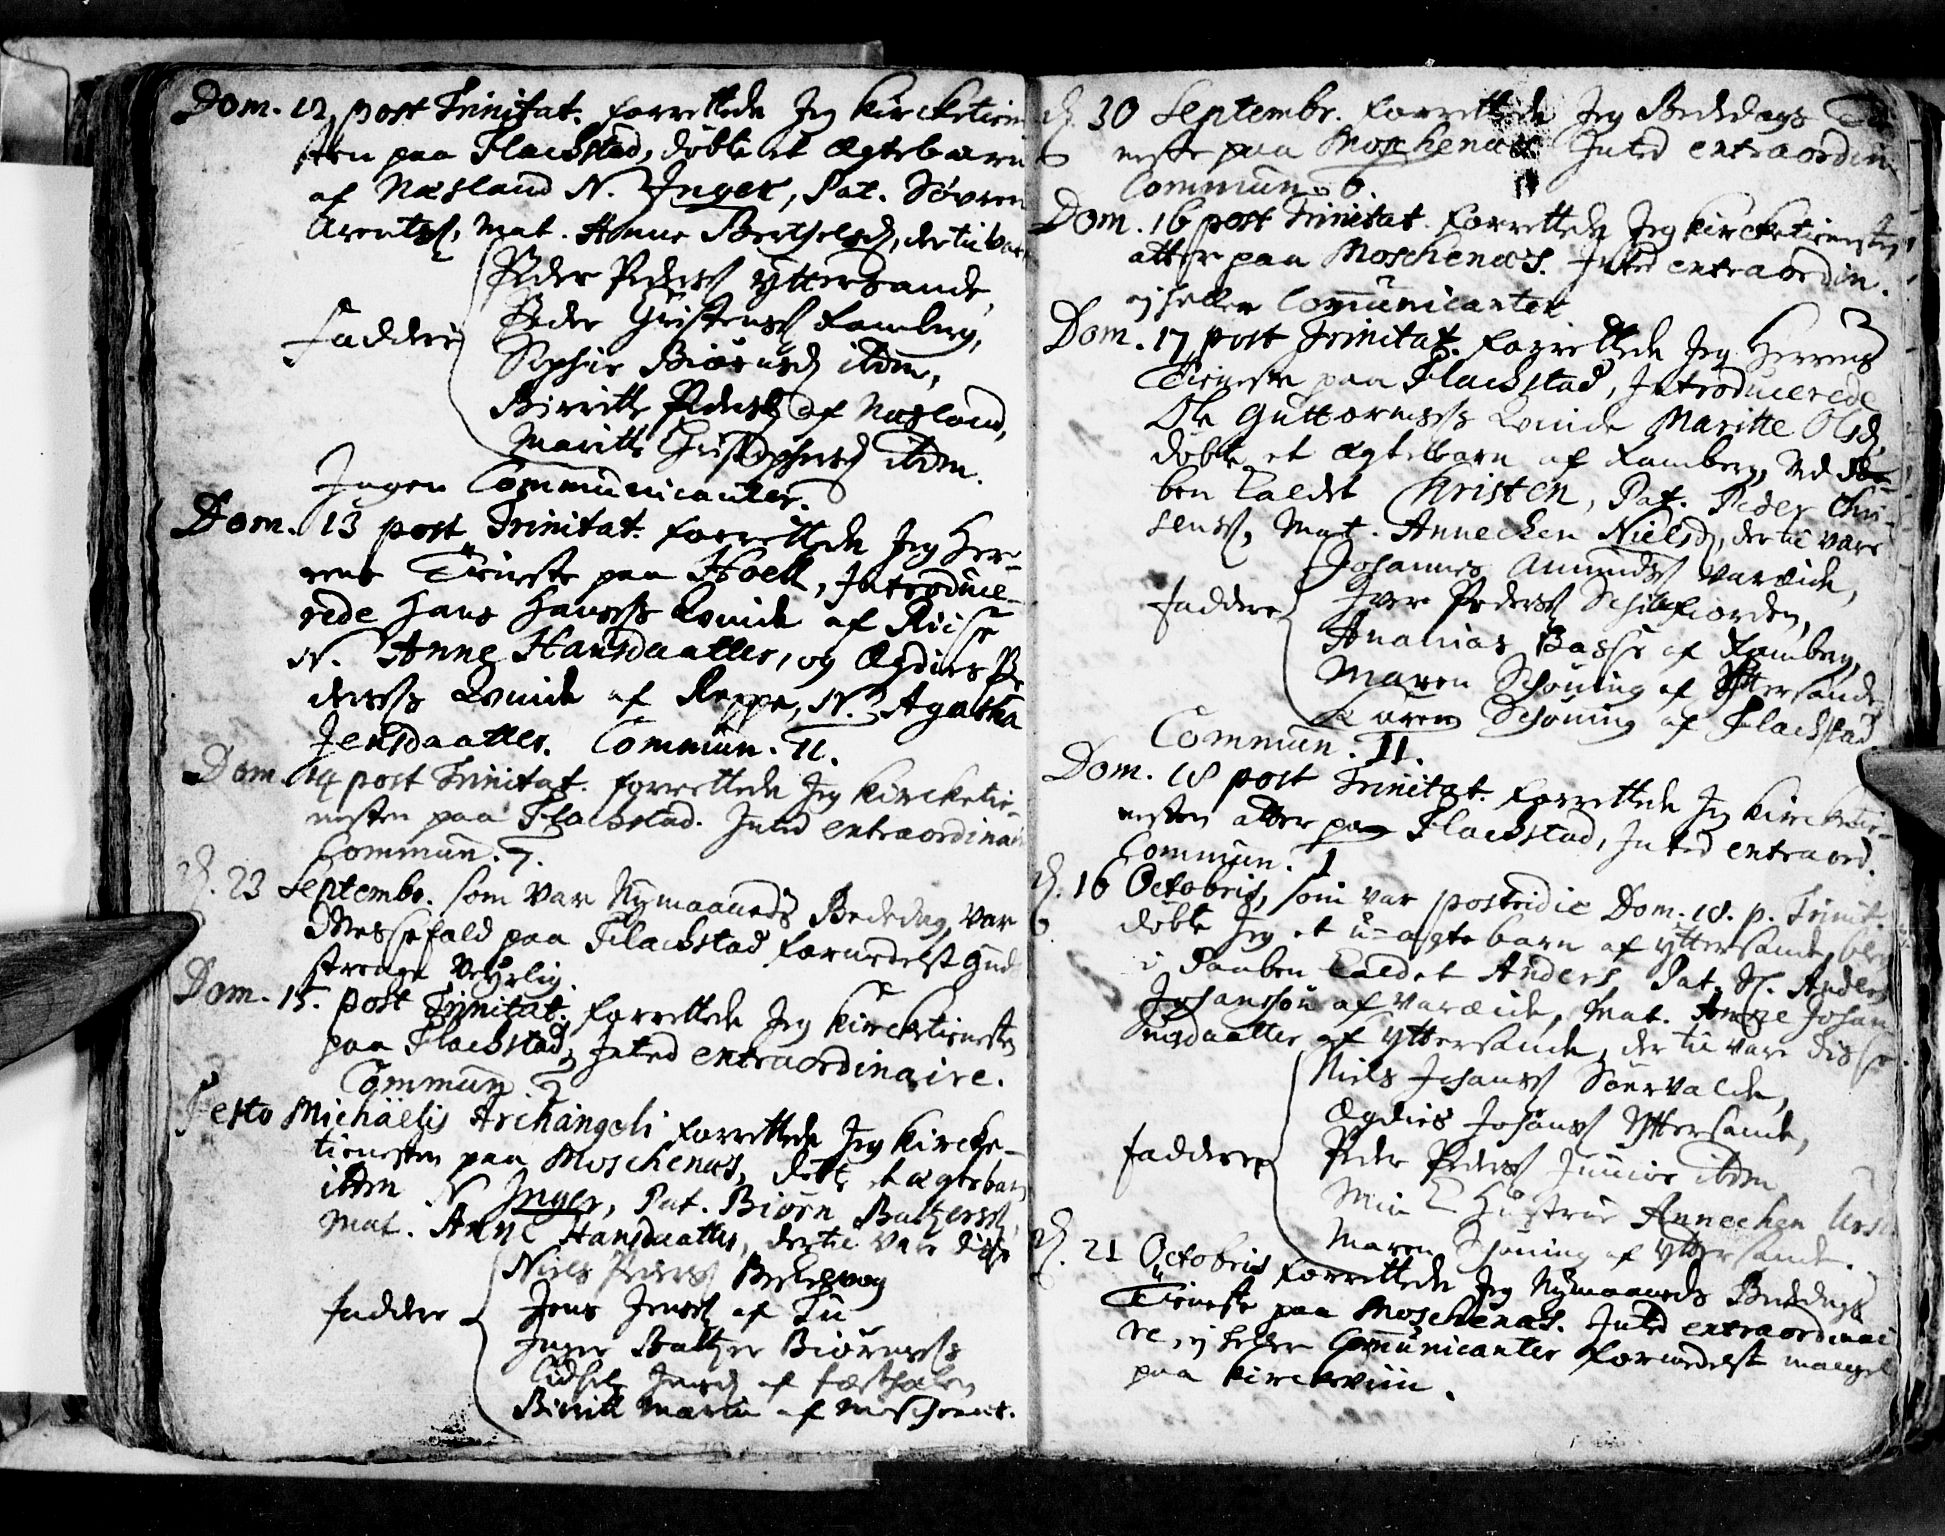 Dom. 12 post Trinitat. forrettede Jeg Kircketien-
sten paa Flachstad, döbte et Ægtebarn
af Næsland N. Inger, Pat. Sövren
Arentss, Mat. Anne Bertelsd, dertil var
Peder Pederss Yttersande,
Peder Christenss Ramberg,
Faddere Sophie Biörnsd ibdm,
Birritte Pedersd af Næsland,
Maritte Christophersd ibdm.
Ingen Communicanter.
Dom. 13 post Trinitat. forrettede Jeg Her-
rens Tieneste paa Hoell, Introduce-
rede Hans Hanss Qvinde af Riise
N. Anne Hansdaatter, og Ægdius Pe
derss Qvinde af Reppe, N. Agatha
Jensdaatter. Commun. 11.
Dom. 14 post Trinitat. forrettede Jeg Kircketie-
nesten paa Flachstad. Inted extraordinair
Commun. 7.
D. 23 Septembr. som var Nymaaneds Bededag, var
Messefald paa Flachstad formedelst Guds
strenge Veyrlig.
Dom. 15. post Trinitat. forrettede Jeg Kircketienesten
paa Flachstad, Inted extraordinaire.
Commun 2
Festo Michaëlis Archangeli forrettede Jeg Kircke-
tienesten paa Moschenæs, döbte et ægtebarn
ibdm N Inger, Pat. Biörn Baltzerss,
Mat. Anne Hansdaatter, dertil vare disse
Niels Pederss
Faddere Jens Jenss af
Baltzer Biörnss
Jensd af
Biritte Marie af Moschenæs.
D. 30 Septembr. forrettede Jeg Bededags Tie
neste paa Moschenæs Inted extraordin.
Commun. 6.
Dom. 16 post Trinitat. forrettede Jeg Kircketienesten
atter paa Moschenæs. Inted extraordin.
ej heller Com̄unicanter
Dom. 17 post Trinitat. forrettede Jeg Herrens
Tieneste paa Flachstad, Introducerede
Ole Guttormss Qvinde Maritte Olsd,
döbte et Ægtebarn af Ramberg, Ved Daa-
ben Caldet Kristen, Pat. Peder Chri-
stenss, Mat. Annechen Nielsd, dertil vare
Johannes Amundss Varæide,
Faddere Iver Pederss Schilfiorden,
Ananias Basse af Ramberg,
Maren Schöning af Yttersande
Karen Schöning af Flachstad
Commun. 11.
Dom. 18 post Trinitat. forrettede Jeg Kircketie-
nesten atter paa Flachstad, Inted extraord.
Commun. 1
D. 16 Octobris, som var postridie Dom. 18. p. Trinit.
döbte Jeg et u-ægte barn af Yttersande, blev
i Daaben Caldet Anders, Pat. S. Anders
Johanssön af Varæide, Mat. Anne Johan
nisdaatter af Yttersande, dertil vare disse
Niels Johanss Sönvalde,
Ægdius Johanss Yttersande,
Faddere Peder Pederss Junior ibdm
Min K. Hustrue Annechen
Maren Schöning af Yttersande.
D. 21 Octobris forrettede Jeg Nymaaneds Bededags
Tieneste paa Moschenæs. Inted extraordinai
re, ej heller Com̄unicanter formedelst mangel
paa Kirckeviin.